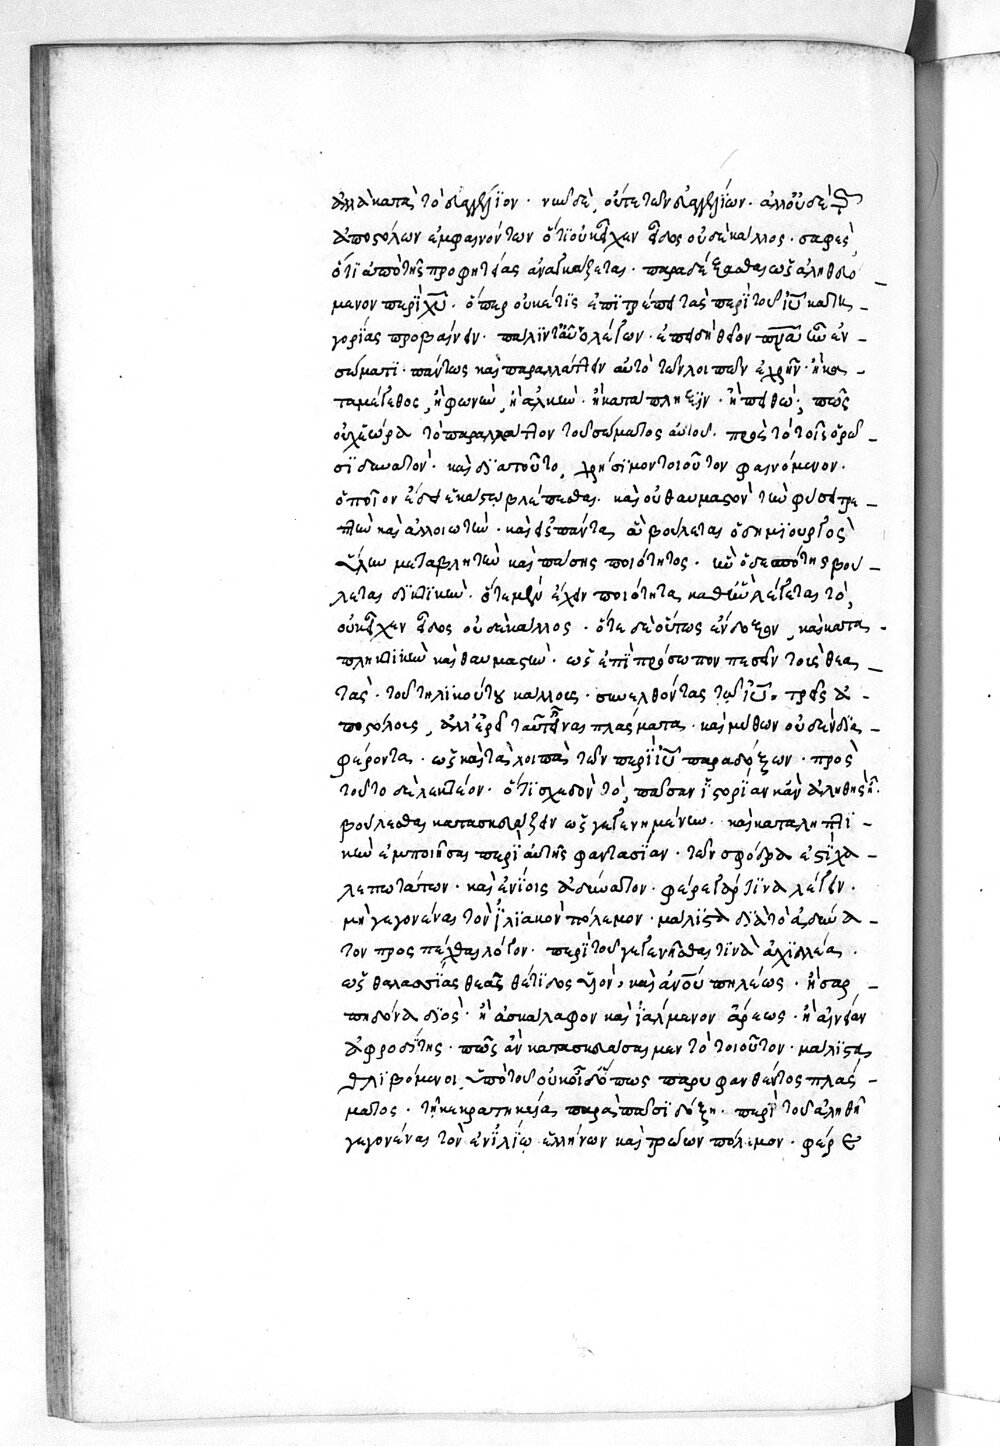 ἀλλὰ κατὰ τὸ εὐαγγέλϊον· νυνὶ δὲ, οὔτε τῶν εὐαγγελίων· ἀλλ' οὐδὲ τῶν
ἀποστόλων ἐμφαινόντων ὅτι οὐκ εἶχεν εἶδος οὐδὲ κάλλος· σαφὲς
ὅτϊ ἀπὸ τῆς προφητείας ἀναγκάζεται· παραδέξασθαι ὡς ἀληθευό
μενον περὶ χυ. ὅπερ οὐκέτϊ ἐπϊτρέπει τὰ περὶ τοῦ ιυ κατη-
γορίας προβαίνειν· πάλϊν τὲ αὖ ὁ λέγων· ἐπειδὴ θεῖον πνα ἦν ἐν-
σώματι· πάντως καὶ παραλλάττειν αὐτὸ τῶν λοιπῶν ἐχρῆν· ἢ κα-
τὰ μέγεθος, ἢ φωνὴν, ἢ ἀλκὴν· ἢ κατάπληξϊν· ἢ πειθώ· πῶς
οὐχ ἑώρα τὸ παραλλάττον τοῦ σώματος αὐτοῦ· πρὸς τὸ τοῖς ὁρῶ-
σϊ δυνατὸν· καὶ δϊὰ τοῦτο, χρήσϊμον τοιοῦτον φαινόμενον·
ὁποῖον ἔδει ἑκάστῳ βλέπεσθαι· καὶ οὐ θαυμαστὸν τὴν φύσει τρε-
πτὴν καὶ ἀλλοιωτὴν· καὶ εἰς πάντα, ἃ βούλεται ὁ δημϊουργὸς
ὕλην μεταβλητὴν καὶ πάσης ποιότητος· ἣν ὁ δεσπότης βού-
λεται δεκτϊκὴν· ὁτὲ μὲν ἔχειν ποιότητα, καθ' ἣν λέγεται τὸ,
οὐκ εἶχεν εἶδος οὐδὲ κάλλος· ὁτὲ δὲ οὕτως ἔνδοξον, καὶ κατα-
πληκτϊκὴν καὶ θαυμαστὴν· ὡς ἐπὶ πρόσωπον πεσεῖν τοὺς θεα-
τὰς· τοῦ τηλϊκούτου κάλλους· συνελθόντας τῷ ιυ τρεῖς ἀ-
ποστόλους, ἀλλ' ἐρεῖ ταῦτ' εἶναι πλάσματα· καὶ μύθων οὐδὲν δϊα-
φέροντα· ὡς καὶ τὰ λοιπὰ τῶν περὶ ιυ παραδόξων· πρὸς
τοῦτο δὲ λεκτέον· ὅτϊ σχεδὸν τὸ, πᾶσαν ἱστορίαν κἂν ἀληθὴς ᾖ·
βούλεσθαι κατασκευάζειν ὡς γεγενημένην· καὶ καταληπτϊ-
κὴν ἐμποιῆσαι περὶ αὐτῆς φαντασίαν· τῶν σφόδρα ἐστὶ χα-
λεπωτάτων· καὶ ἐνίοις ἀδύνατον· φέρε γάρ τϊνα λέγειν·
μὴ γεγονέναι τὸν ἰλϊακὸν πόλεμον· μάλϊστα δϊὰ τὸ ἀδύνα-
τον προσπεπλέχθαι λόγον· περὶ τοῦ γεγενῆσθαί τϊνα ἀχϊλλέα·
ὡς θαλασσίας θεᾶς θέτιδος υἱόν, καὶ ἀνου πηλέως· ἢ σαρ-
πηδόνα δϊὸς· ἢ ἀσκάλαφον καὶ ἰάλμενον ἄρεως· ἢ αἰνείαν
ἀφροδίτης· πῶς ἂν κατασκευάσαιμεν τὸ τοιοῦτον· μάλϊστα,
θλϊβόμενοι ὑπὸ τοῦ οὐκ οἶδ' ὅπως παρυφανθέντος πλάσ-
ματος· τῇ κεκρατηκυίᾳ παρὰ πᾶσϊ δόξῃ· περὶ τοῦ ἀληθῆ
γεγονέναι τὸν ἐν ἰλίῳ ἑλλήνων καὶ τρώων πόλεμον· φέρε